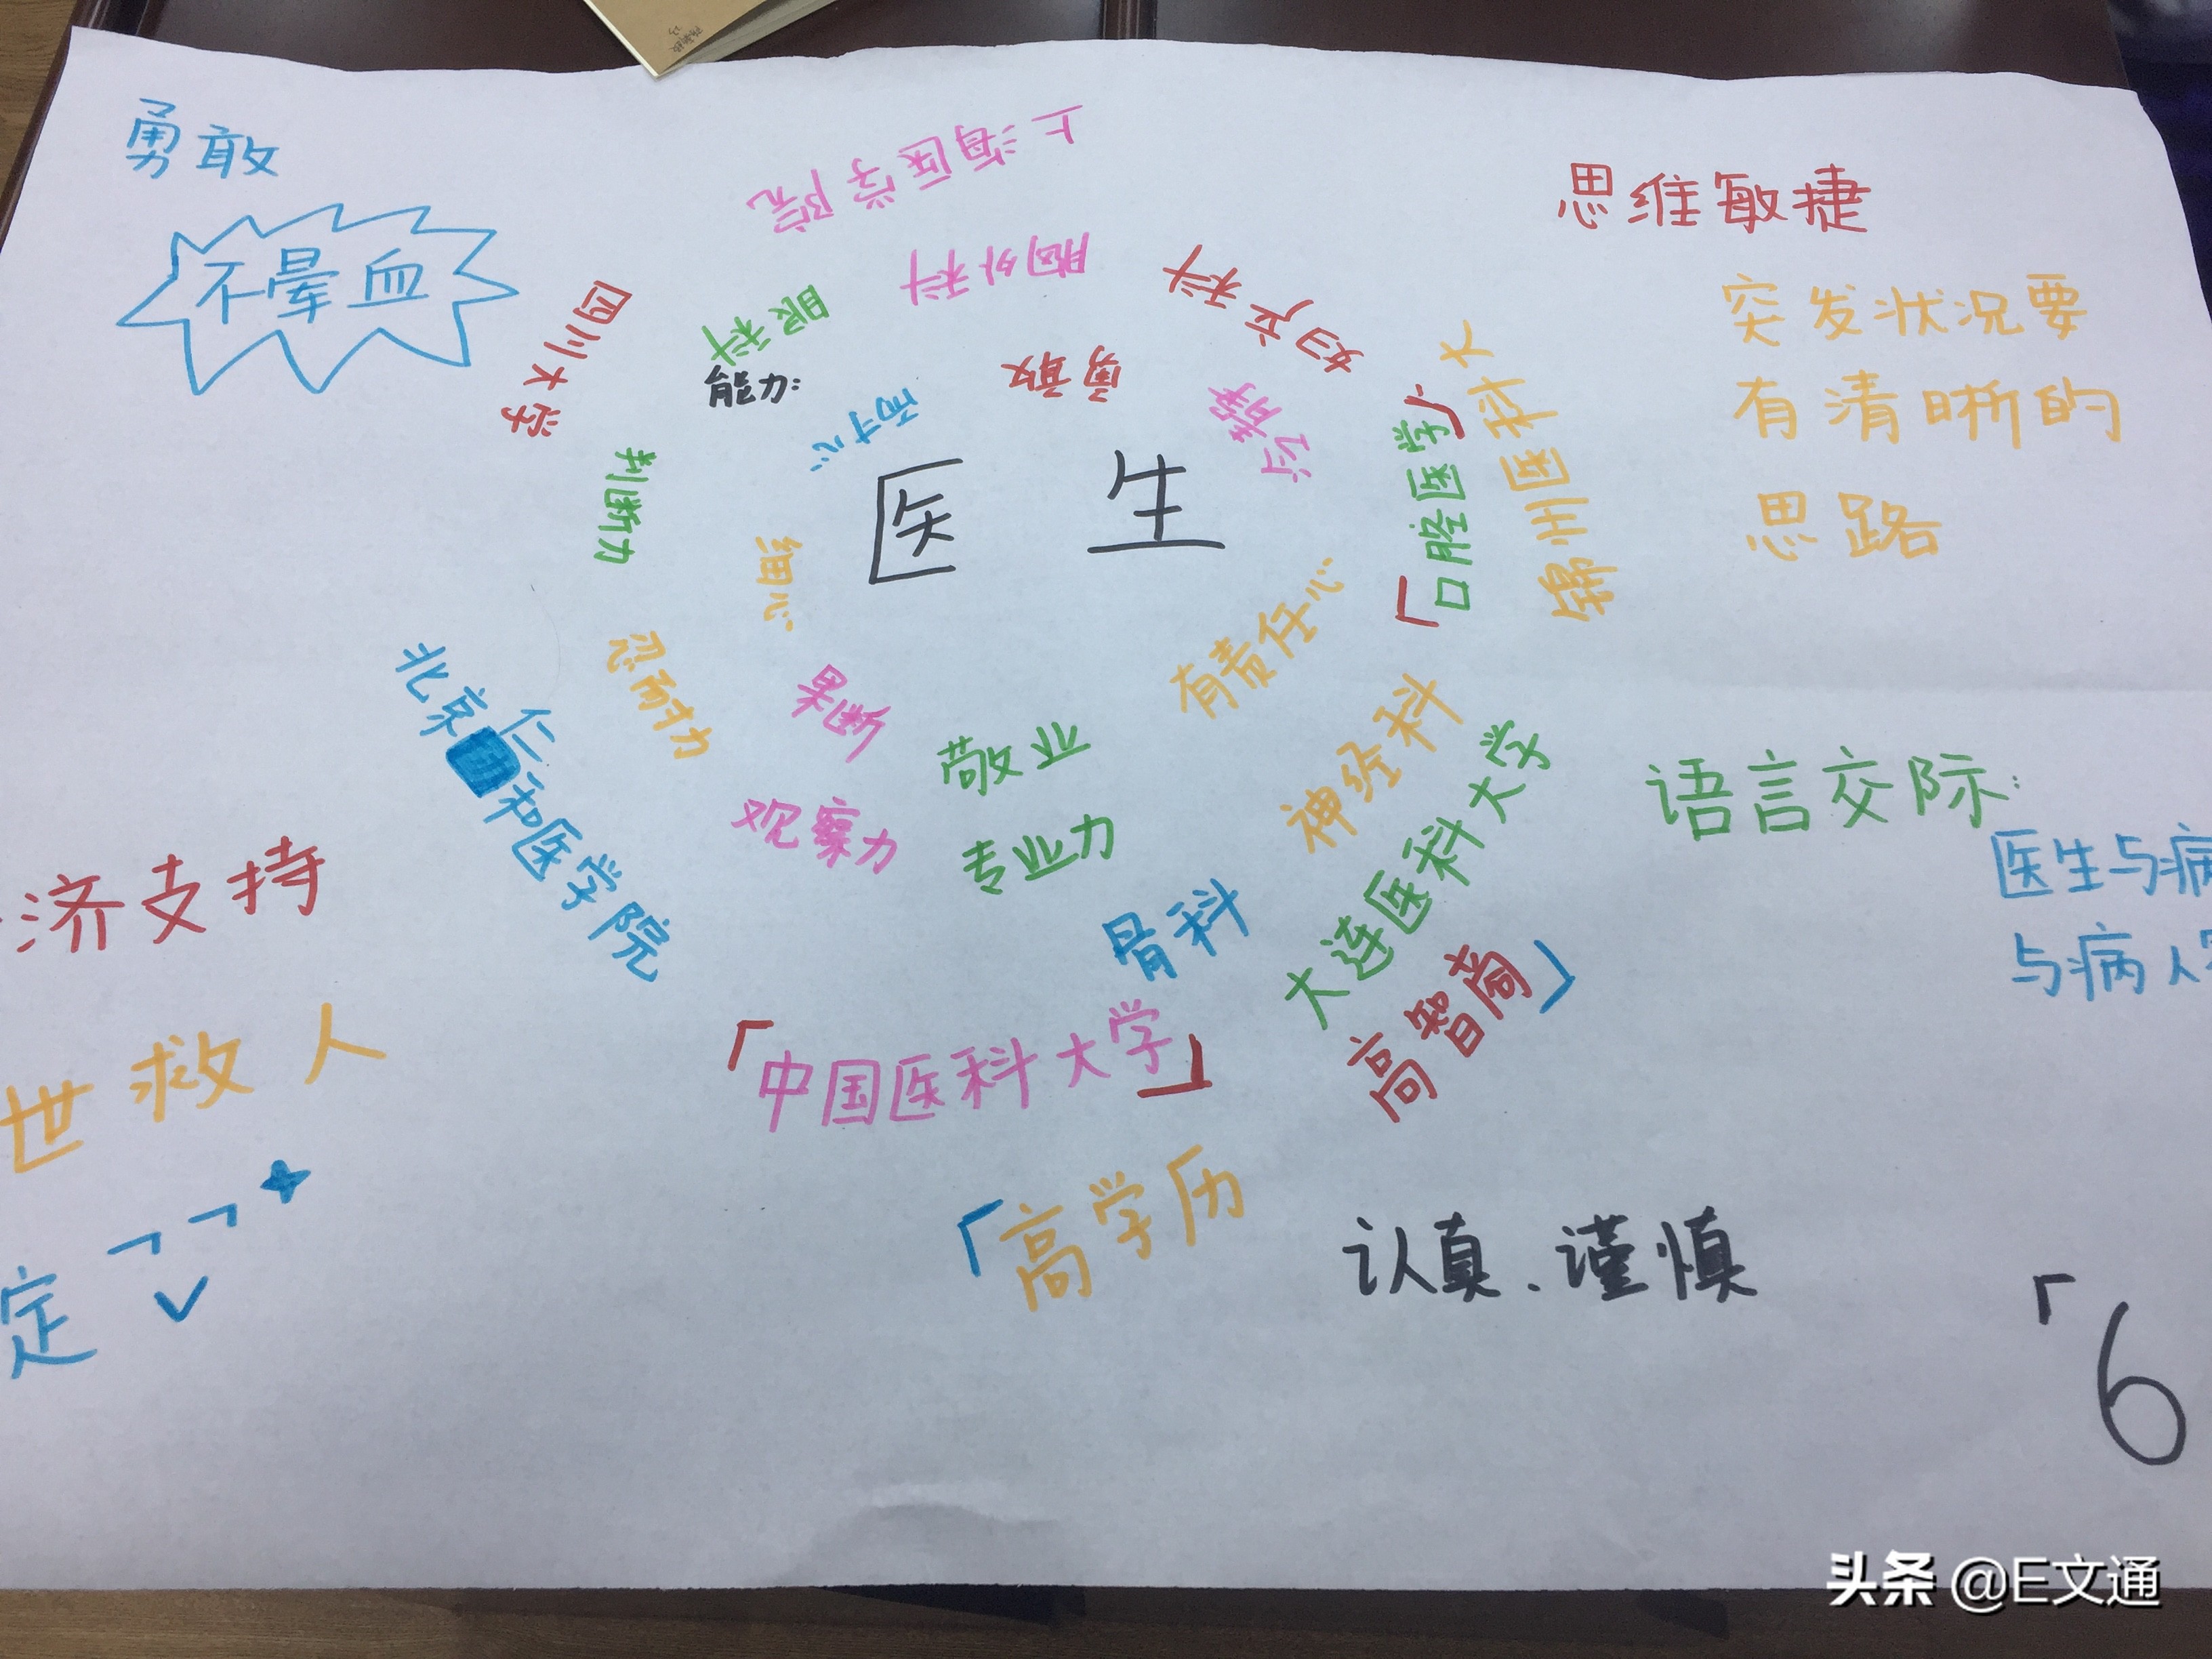 勇敢
不晕血
上海医学院
胸外科
妇产科
眼科
四川大学
能力:
耐心
勇敢
冷静
医生
判断力
细心
「口腔医学」
锦州医科大
思维敏捷
突发状况要
有清晰的
思路
北京仁和医学院
忍耐力
果断
敬业
有责任心
观察力
专业力
神经科
骨科
大连医科大学
语言交际:
医生与病
与病人
济支持
世救人
定
「中国医科大学」
「高学历
高智商」
认真.谨慎
「6
头条 @E文通